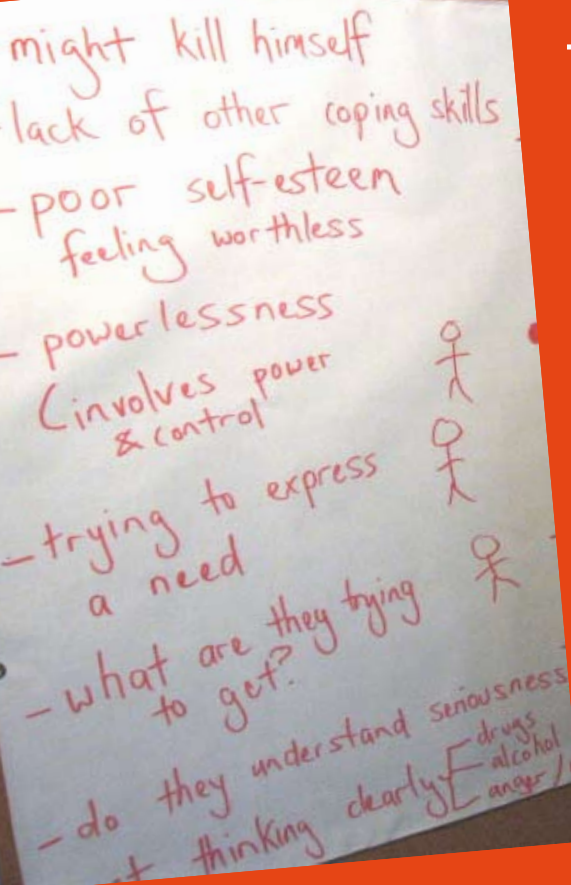 might kill himself
- lack of other coping skills
- poor self-esteem
feeling worthless
- powerlessness
(involves power
& control
- trying to express
a need
- what are they trying
to get?
- do they understand seriousness
drugs
thinking clearly
alcohol
anger /